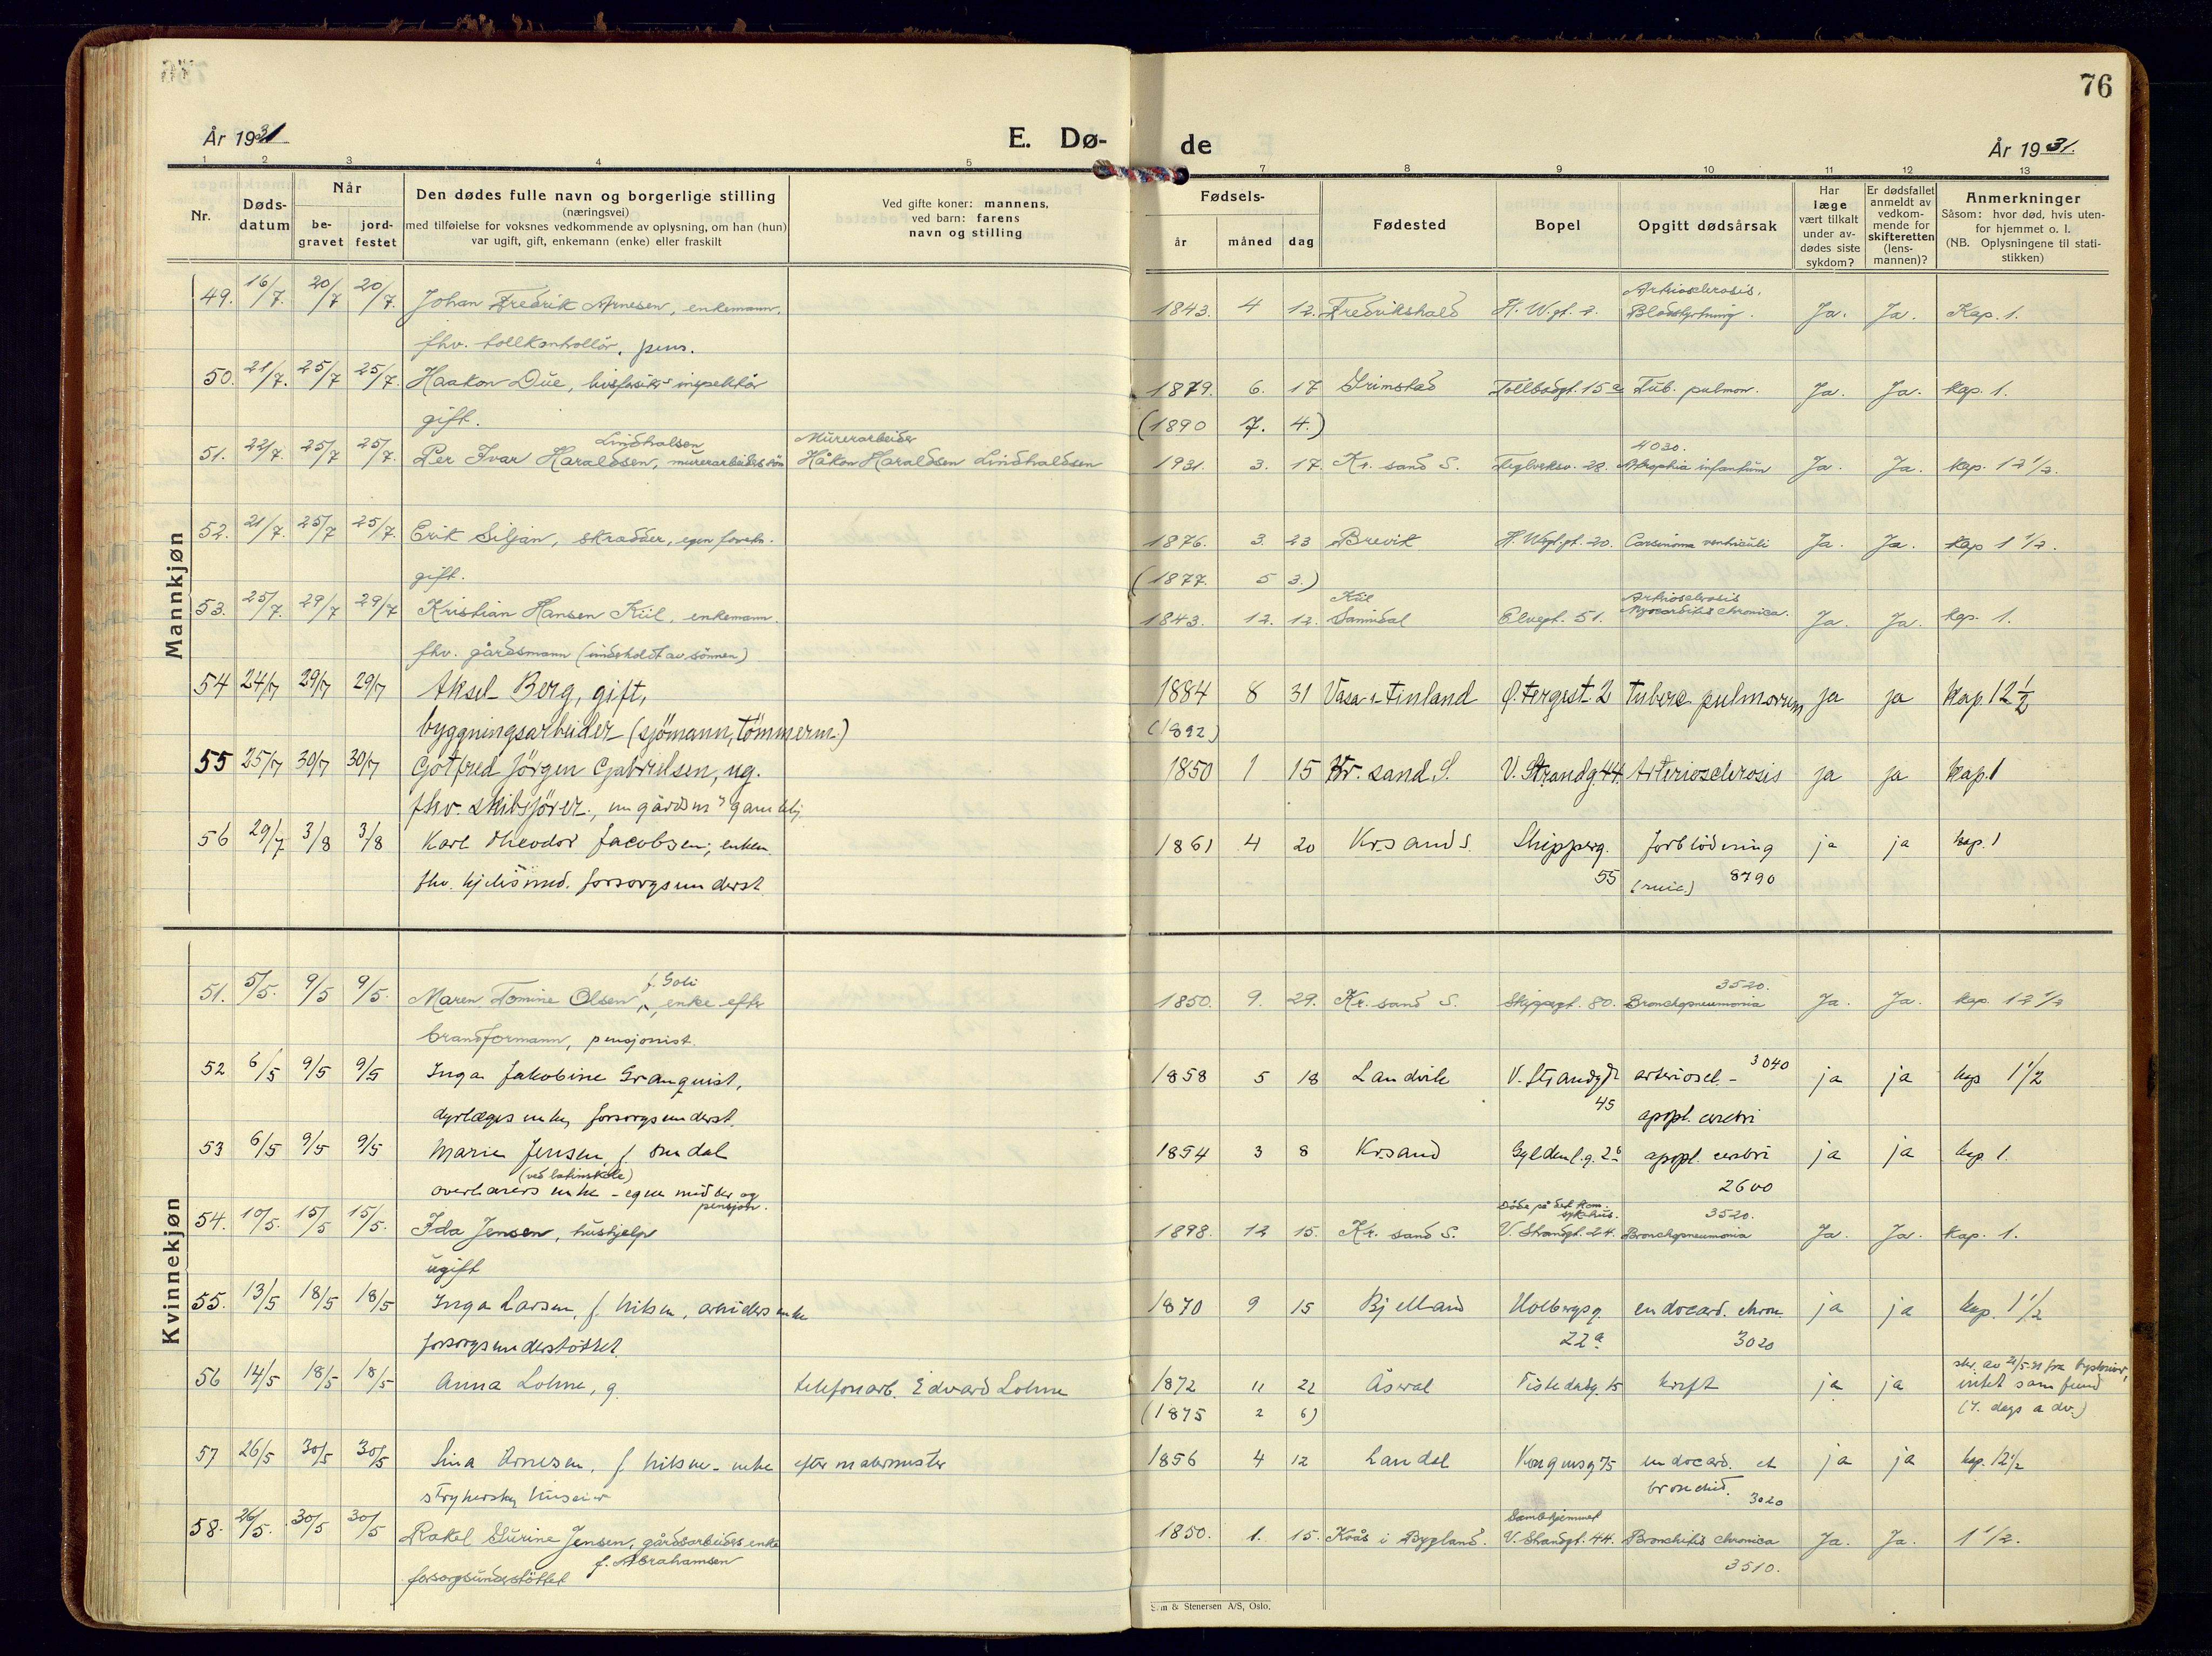 76
År 1931
E. Dø-
de
År 1931.
1 2 3 4 5 7 8 9 10 11 12 13
Nr.
Døds-
datum
Når
be-
gravet
jord-
festet
Den dødes fulle navn og borgerlige stilling
(næringsvei)
med tilføielse for voksnes vedkommende av oplysning, om han (hun)
var ugift, gift, enkemann (enke) eller fraskilt
Ved gifte koner: mannens,
ved barn: farens
navn og stilling
Fødsels-
år
måned
dag
Fødested
Bopel
Opgitt dødsårsak
Har
læge
vært tilkalt
under av-
dødes siste
sykdom?
Er dødsfallet
anmeldt av
vedkom-
mende for
skifteretten
(lens-
mannen)?
Anmerkninger
Såsom: hvor død, hvis uten-
for hjemmet o. l.
(NB. Oplysningene til stati-
stikken)
Mannkjøn
Arteriosclerosis.
49. 16/7. 20/7 20/7. Johan Fredrik Arnesen, enkemann. 1843. 4 12. Fredrikshald H. W.gt. 2. Ja. Ja. Kap. 1.
fhv. tollkontrollør, pens.
50. 21/7. 25/7 25/7. Haakon Due, inspektør 1879. 6. 17 Grimstad Tollbodgt. 15a Tub. pulmon. Ja. Ja. Kap. 1.
gift. (1890 7. 4.)
Lindhalsen Murerarbeider 4030.
51. 22/7. 25/7 25/7. Per Ivar Haraldsen, murerarbeiders søn Håkon Haraldsen Lindhaldsen 1931. 3. 17. Kr. sand S. Teglverksv. 28. Atrophia infantum Ja. Ja. Kap. 12 1/2.
52. 21/7. 25/7 25/7. Erik Siljan, skrædder, egen forretn. 1876. 3. 23 Brevik H. Wergl.gt. 20. Carsinoma ventriculi Ja. Ja. Kap 1 1/2.
gift. (1877. 5 3.)
Kiil Arteriosclerosis
53. 25/7. 29/7 29/7 Kristian Hansen Kiil, enkemann. 1843. 12. 12. Sannidal Elvegt. 51. Myocarditis chronica. Ja. Ja. Kap. 1.
fhv. gårdsmann (underholdt av sønnen)
54 24/7 29/7 29/7 Aksel Berg, gift, 1884 8 31 Vasa i Finland Ø. Fergest. 2 Tuberc pulmorum ja ja kap. 12 1/2
byggningsarbeider (sjømann, tømmerm.) (1892)
55 25/7 30/7 30/7 Gotfred Jörgen Gabrielsen, ug. 1850 1 15 Kr. sand. S. V. Strandg. 44. Arteriosclerosis ja ja kap. 1
fhv. skibsfører.,
56 29/7 3/8 3/8 Karl Theodor Jacobsen, enkem. 1861 4 20 Kr.sand S. Skipperg. 55 forblödning (suic.) 8790 ja ja kap. 1
fhv. forsorgsunderst.
Kvinnekjøn
f. Goli 3520.
51. 5/5. 9/5 9/5. Maren Tomine Olsen, enke efter 1850. 9. 29. Kr. sand S. Skippergt. 80. Bronchopneumonia Ja. Ja. kap. 12 1/2
brandformann, pensjonist.
52 6/5 9/5 9/5 Inga Jakobine Granquist, 1858 5 18 Landvik V. Strandgt 45 arteriosel. - 3040 ja ja kap 1 1/2
dyrlæges enke, forsorgsunderst. apopl. cerebri
53 6/5 9/5 9/5 Marie Jensen f. Omdal 1854 3 8 Kr.sand Gyldenl.g. 2b apopl. cerebri ja ja kap 1.
(ved latinskole) 2600
overlærers enke - egne midler og
pensjon.
Døde på det kom. sykehus. 3520.
54. 10/5. 15/5 15/5. Ida Jensen, hushjelp 1898. 12 15. Kr. sand S. V. Strandgt. 24. Bronchopneumonia Ja. Ja. Kap. 1.
ugift
55. 13/5 18/5 18/5 Inga Larsen, f. Nilsen, arbeiders enke 1870 9 15 Bjelland Holbergsg. 22a endocard. chron. ja ja kap. 1 1/2
forsorgsunderstöttet. 3020
56 14/5 18/5 18/5 Anna Lohne, g. telefonarb. Edvard Lohne 1872 11 22 Åseral Tistedalsg. 15 kreft ja ja
(1875 2 6) intet samfund
(7. dags adv.)
57 26/5 30/5 30/5 Lina Arnesen, f. Nilsen - enke efter malermester 1856 4 12 Landal Kongensg 75 endocard. et ja ja kap. 12 1/2
bronchid. 3020
Samlehjemmet
58. 26/5. 30/5 30/5 Rakel Surine Jensen, gårdsarbeiders enke 1850. 1. 15. Kvås i Bygland. V. Strandgt. 44. Bronchitis chronica Ja. Ja. 1 1/2.
f. Abrahamsen
forsorgsunderstöttet 3510.
& Stenersen A/S, Oslo.